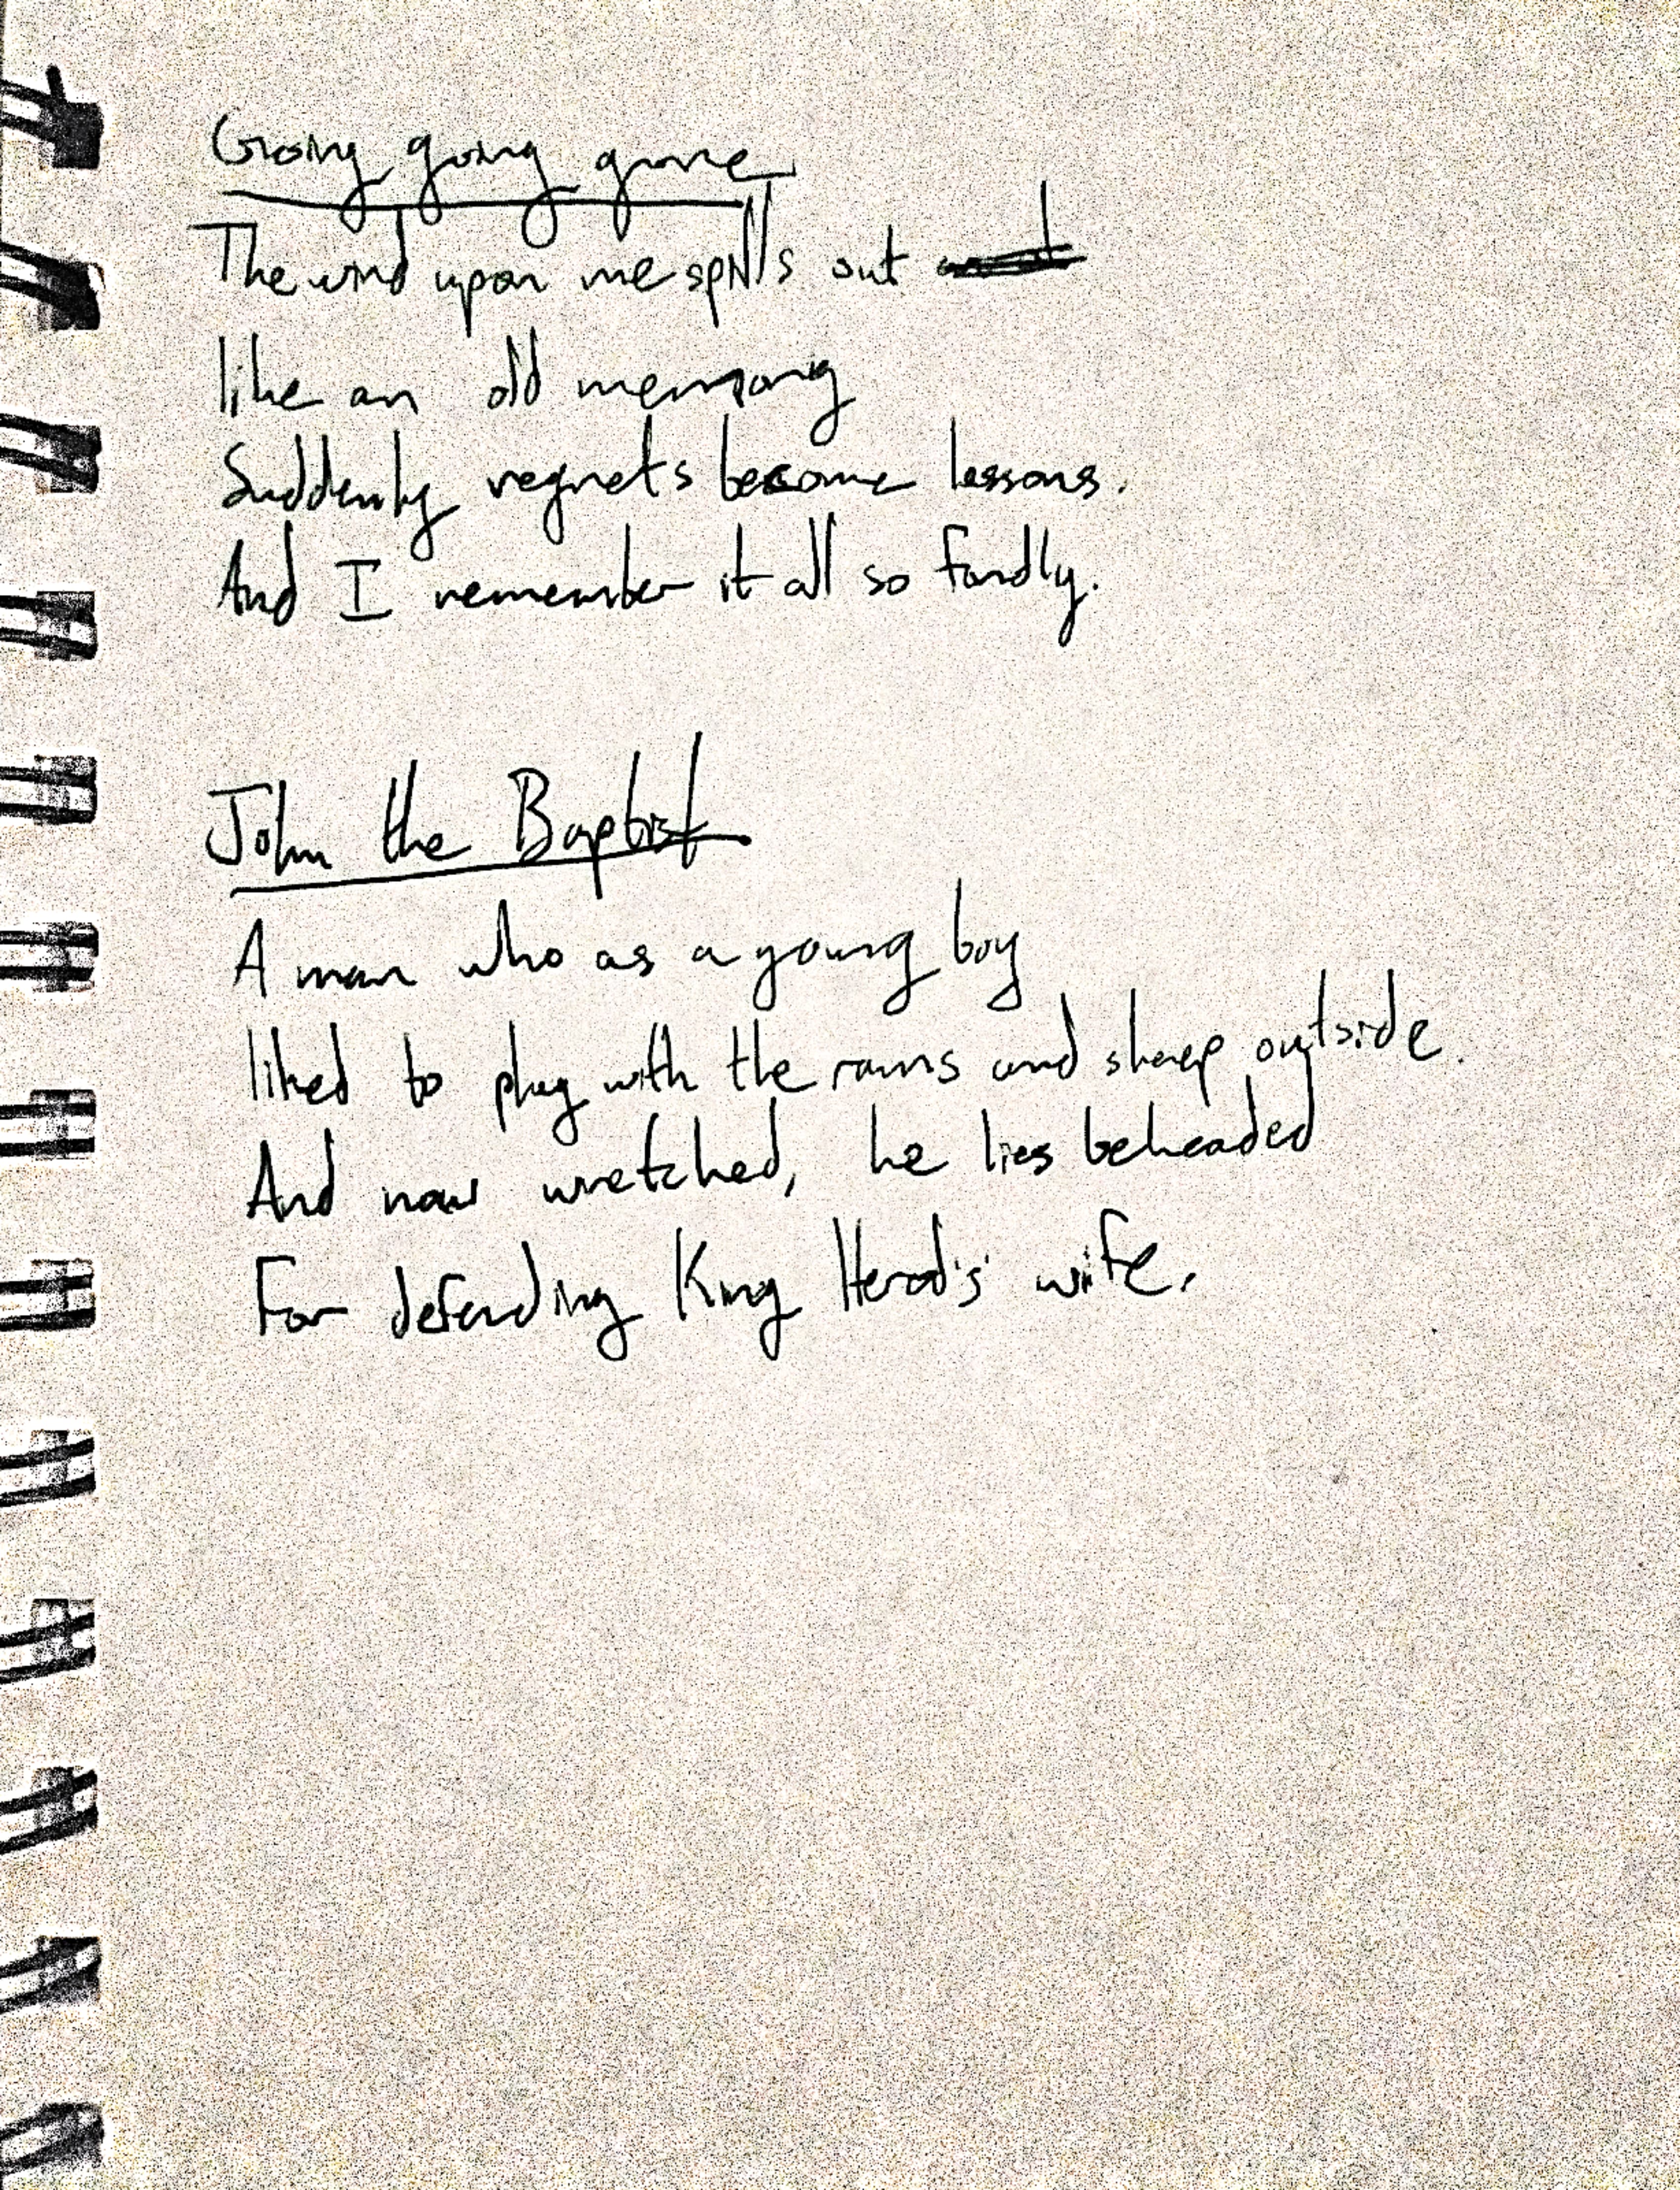 Going going gone
The wind upon me spills out
like an old memory
Suddenly regrets become lessons.
And I remember it all so fondly.
John the Baptist
A man who as a young boy
liked to play with the rams and sheep outside.
And now wretched, he lies beheaded
For defending King Herod's wife.